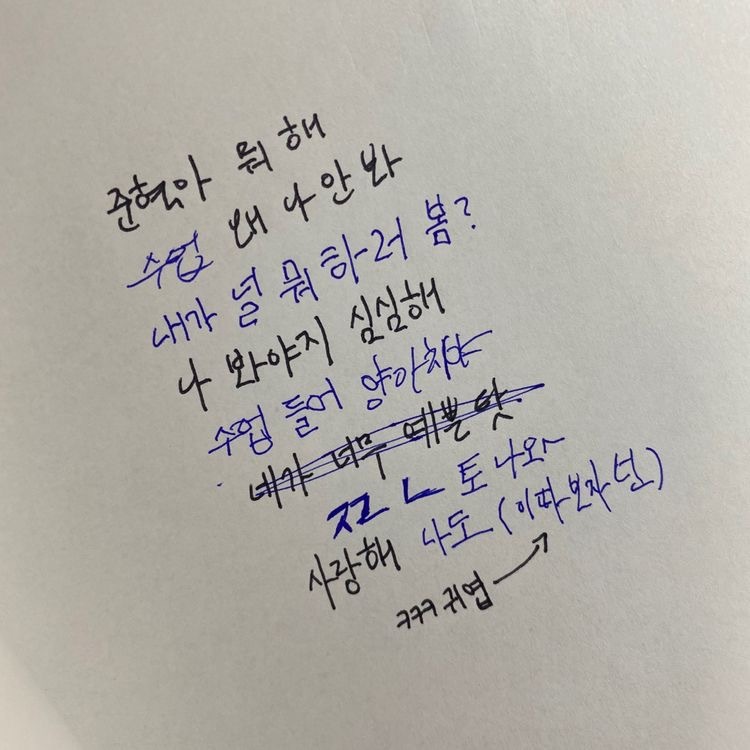 준혁아 뭐 해
수업 왜 나 안 봐
내가 널 뭐하러 봄?
나 봐야지 심심해
수업 들어 양아치야
네가 너무 예쁜 탓
ㅈㄴ 토 나와
사랑해 나도 (이따 보자 넌)
ㅋㅋㅋ 귀엽